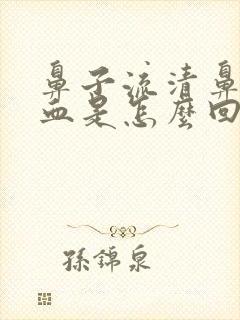 鼻子流清鼻
血是怎麼回
孫錦泉